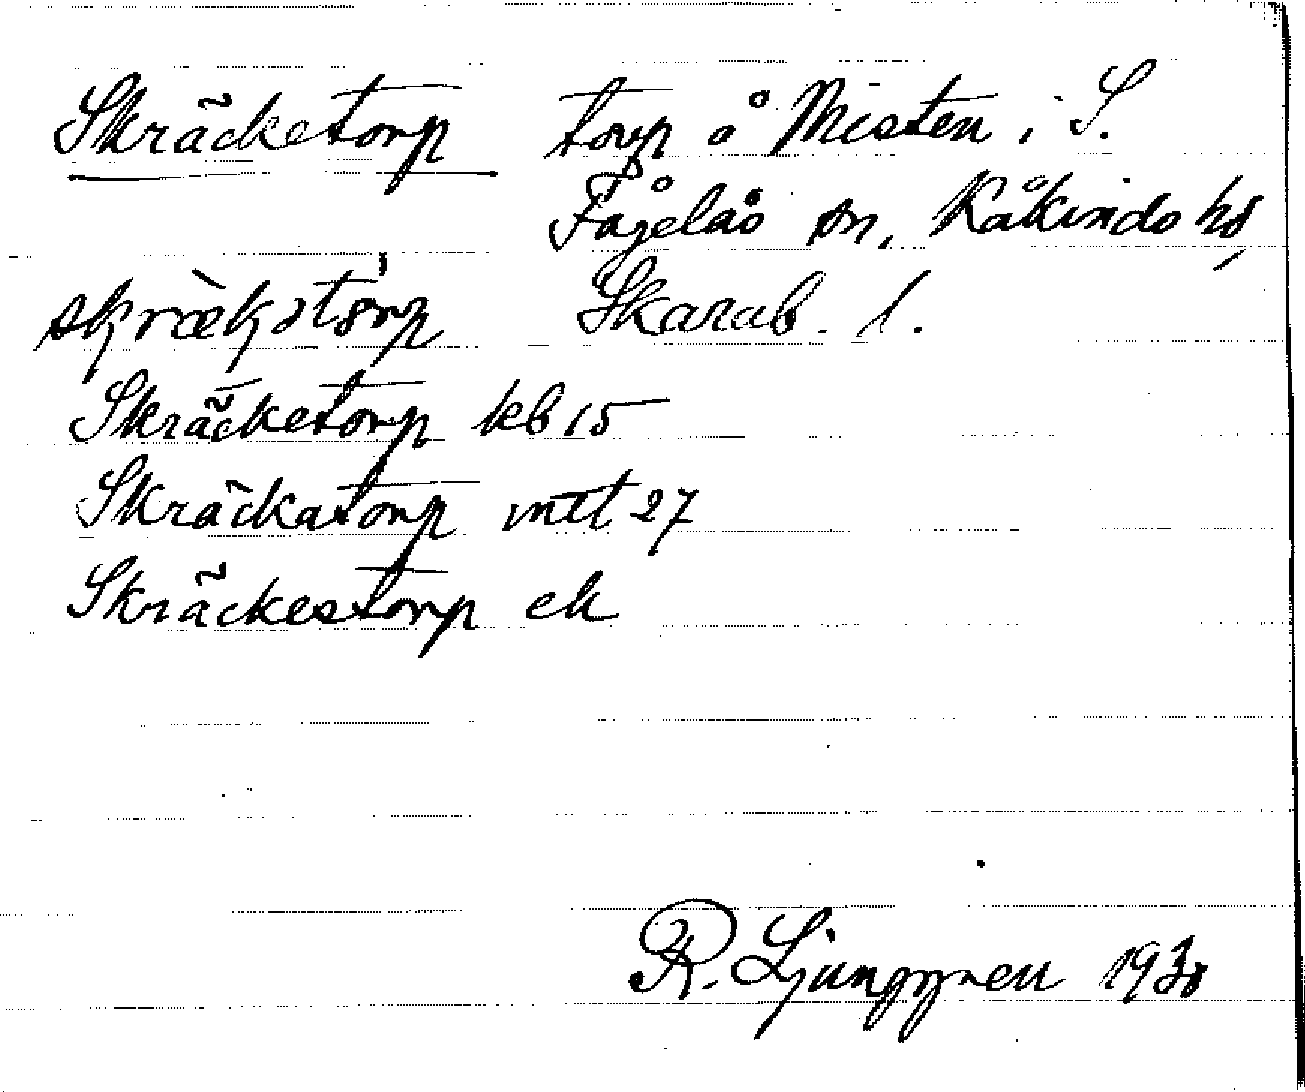 Skräcketorp torp å Misten i S.
Fågelås sn, Kåkinds hd,
skrækətòrp Skarab. l.
Skräcketorp kb 15
Skräckatorp mtl 27
Skräckestorp ek
R. Ljunggren 1930